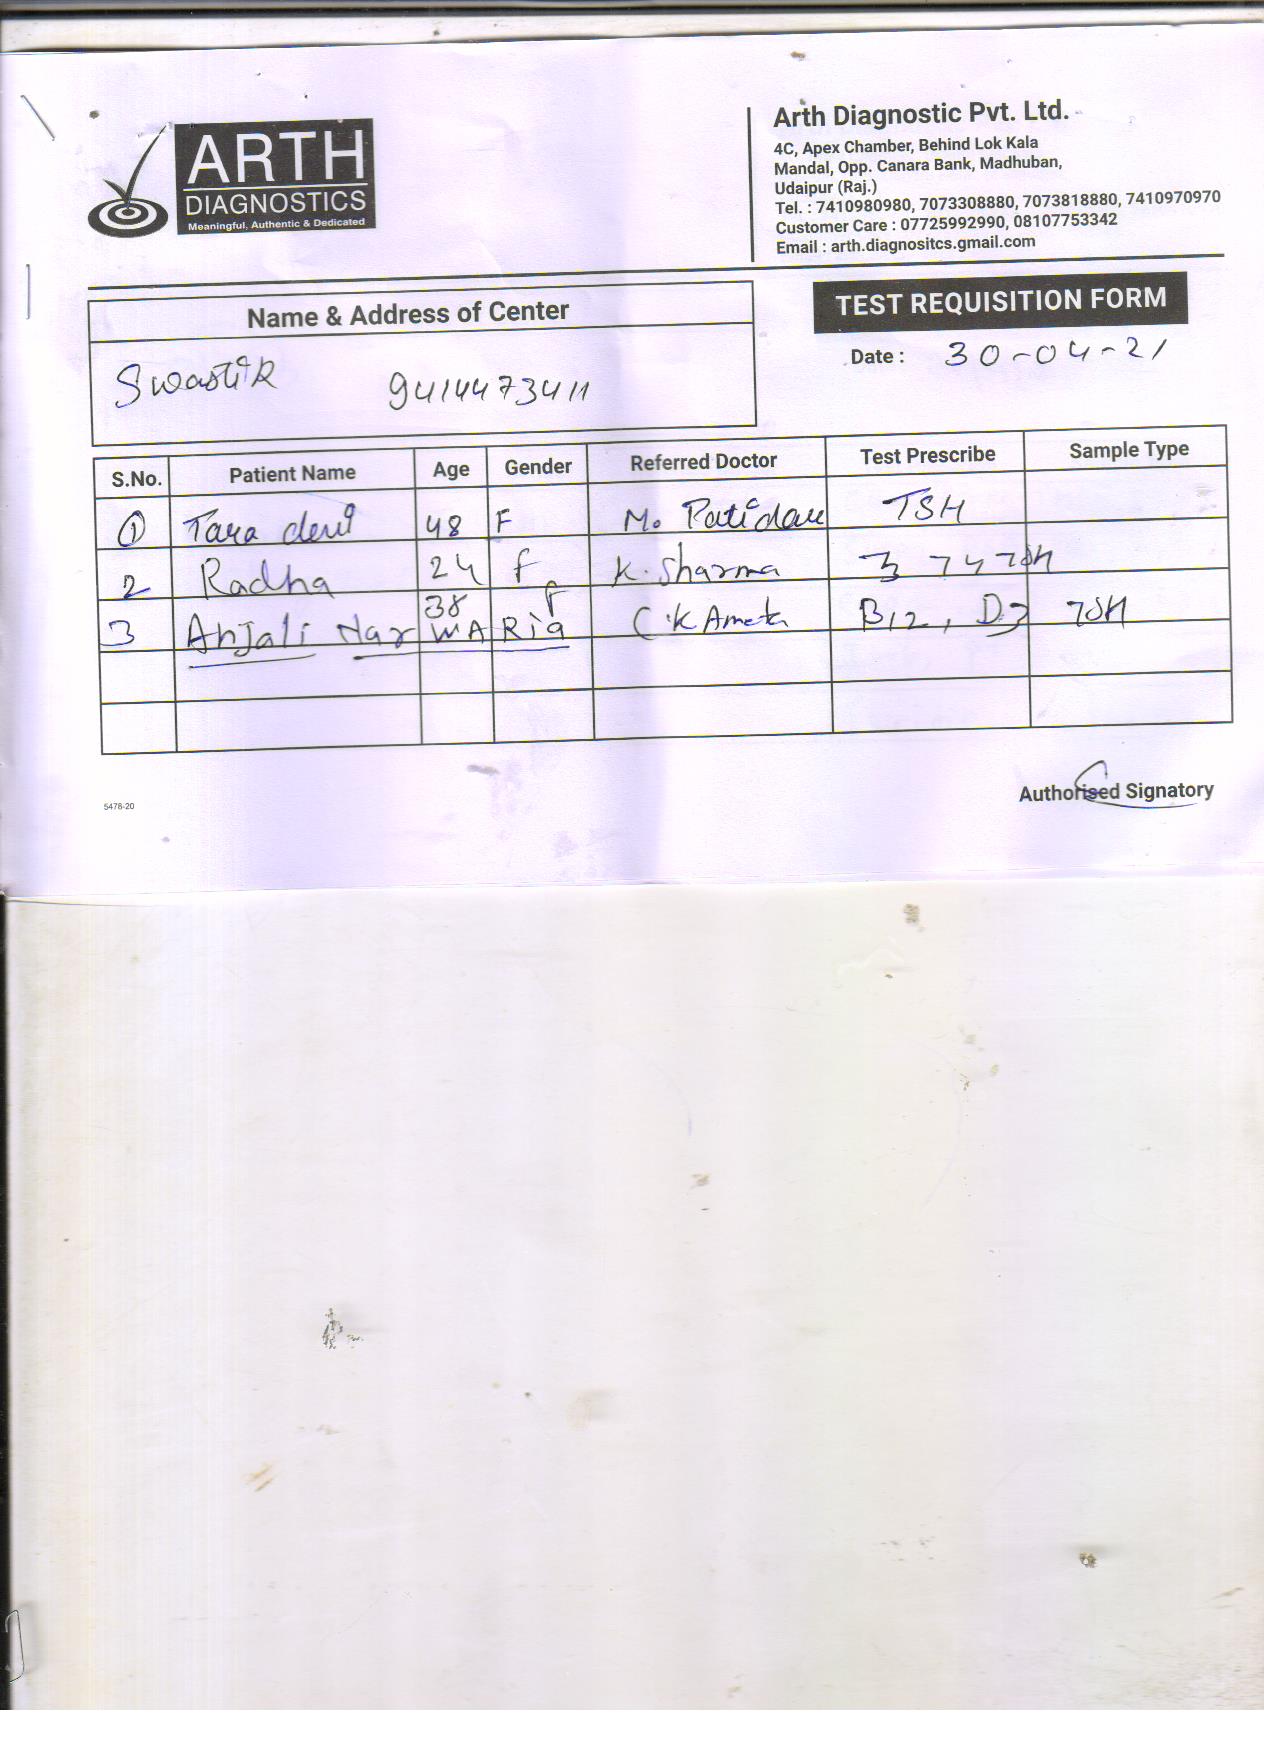 ARTH
DIAGNOSTICS
Meaningful, Authentic & Dedicated
Arth Diagnostic Pvt. Ltd.
4C, Apex Chamber, Behind Lok Kala
Mandal, Opp. Canara Bank, Madhuban,
Udaipur (Raj.)
Tel. : 7410980980, 7073308880, 7073818880, 7410970970
Customer Care : 07725992990, 08107753342
Email : arth.diagnositcs.gmail.com
Name & Address of Center
TEST REQUISITION FORM
Swastik 9414473411
Date : 30-04-21
S.No. Patient Name Age Gender Referred Doctor Test Prescribe Sample Type
1 Tara devi 48 F M. Patidar TSH
2 Radha 24 F K. Sharma T3 T4 TSH
3 Anjali Narwaria 38 F C.K Ameta B12, D3 TSH
Authorised Signatory
5478-20